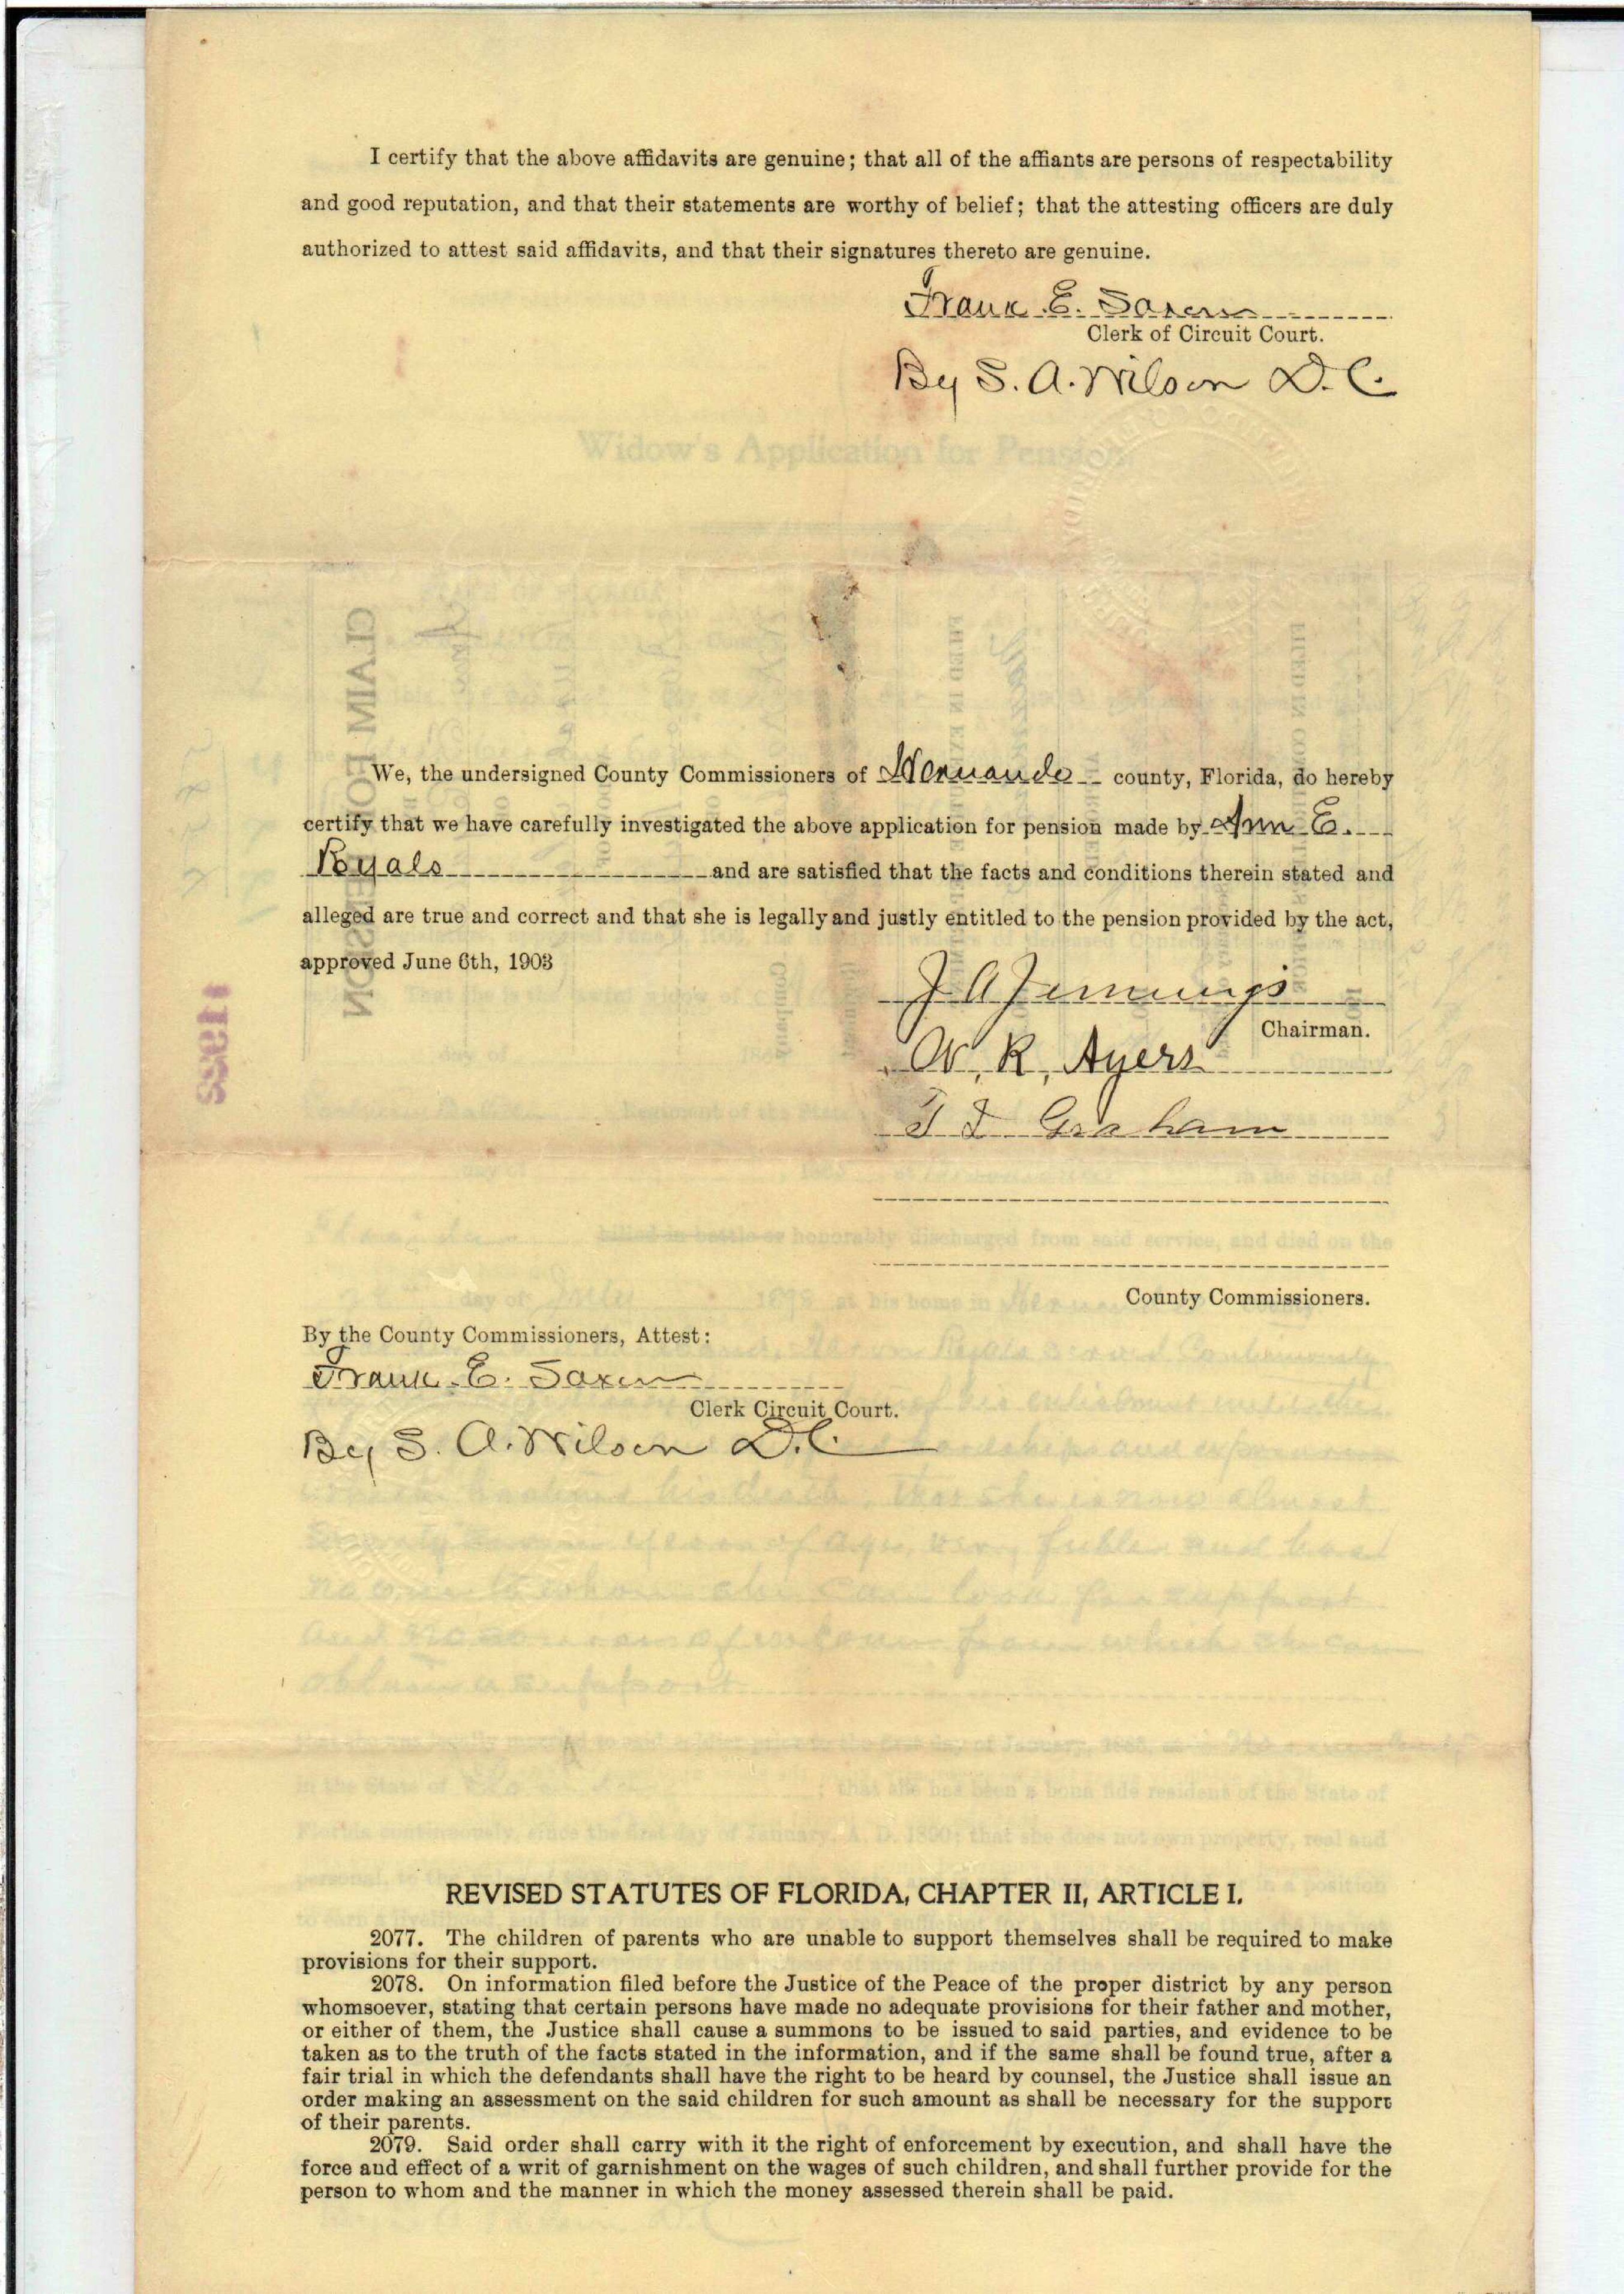 I certify that the above affidavits are genuine; that all of the affiants are persons of respectability
and good reputation, and that their statements are worthy of belief; that the attesting officers are duly
authorized to attest said affidavits, and that their signatures thereto are genuine.
Frank E. Saxon
Clerk of Circuit Court.
By S. A. Wilson D. C.
Widow's Application for Pension.
We, the undersigned County Commissioners of Hernando county, Florida, do hereby
certify that we have carefully investigated the above application for pension made by Ann E.
Ryals and are satisfied that the facts and conditions therein stated and
alleged are true and correct and that she is legally and justly entitled to the pension provided by the act,
approved June 6th, 1903
J A Jennings
Chairman.
W. R. Ayers
Graham
County Commissioners.
By the County Commissioners, Attest:
Frank E. Saxon
Clerk Circuit Court.
By S. A. Wilson D.C.
REVISED STATUTES OF FLORIDA, CHAPTER II, ARTICLE I.
2077. The children of parents who are unable to support themselves shall be required to make
provisions for their support.
2078. On information filed before the Justice of the Peace of the proper district by any person
whomsoever, stating that certain persons have made no adequate provisions for their father and mother,
or either of them, the Justice shall cause a summons to be issued to said parties, and evidence to be
taken as to the truth of the facts stated in the information, and if the same shall be found true, after a
fair trial in which the defendants shall have the right to be heard by counsel, the Justice shall issue an
order making an assessment on the said children for such amount as shall be necessary for the support
of their parents.
2079. Said order shall carry with it the right of enforcement by execution, and shall have the
force and effect of a writ of garnishment on the wages of such children, and shall further provide for the
person to whom and the manner in which the money assessed therein shall be paid.